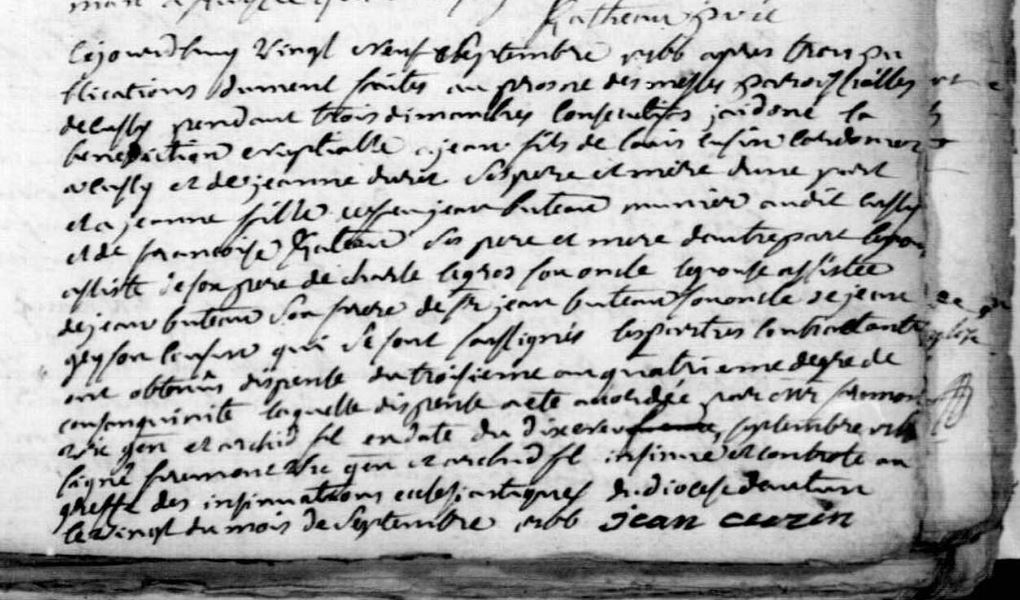 Catherin privé
cejourdhuy vingt neuf septembre 1766 apres trois pu
blications dument faites au prosne des messes paroissialles
de cussy pendant trois dimanches consecutifs jai doné la
benediction nuptialle a jean fils de louis cusin cordonnier
a cussy et de jeanne duret ses pere et mere dune part
et a jeanne fille jean buteau munier audit cussy
et de françoise gateau ses pere et mere dautre part lepou
assisté de son pere de charle legros son oncle lepouse assistée
de jean buteau son frere de sr jean buteau son oncle de jeane
qui se sont soussignés les parties contractante
ont obtenus dispense du troisieme au quatrieme degre de
consanguinité laquelle dispense a eté accordée par mr
vic gen et archid en date du septembre
signé vic gen et archid insinué et controlé au
greffe des insinuations eclesiastiques du diocese dautun
le vingt du mois de septembre 1766 jean cuzin